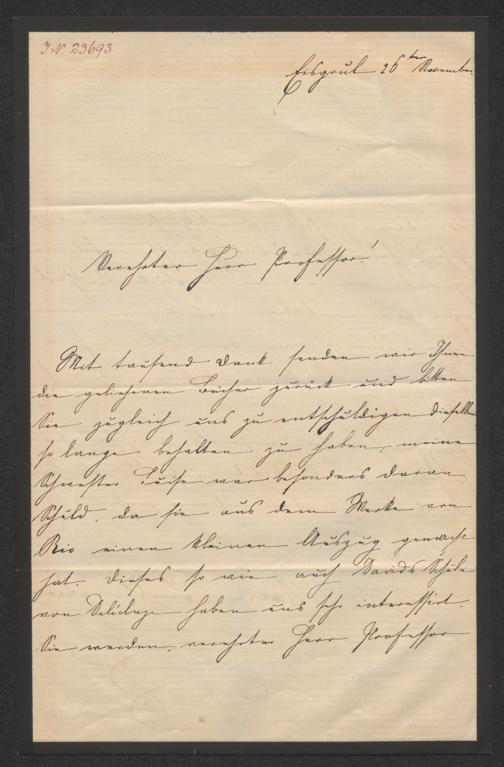 I. N. 23693
Eisgrub 26ter November
Verehrter Herr Professor!
Mit tausend Dank senden wir Ihnen
die geliehenen Bücher zurück und bitten
Sie zugleich uns zu entschuldigen dieselben
so lange behalten zu haben, meine
Schwester Luise war besonders daran
Schuld, da sie aus dem Werke von
Rio einen kleinen Auszug gemacht
hat. Dieses so wie auch Davids Schule
von Delécluze haben uns sehr interessirt.
Sie werden, verehrter Herr Professor